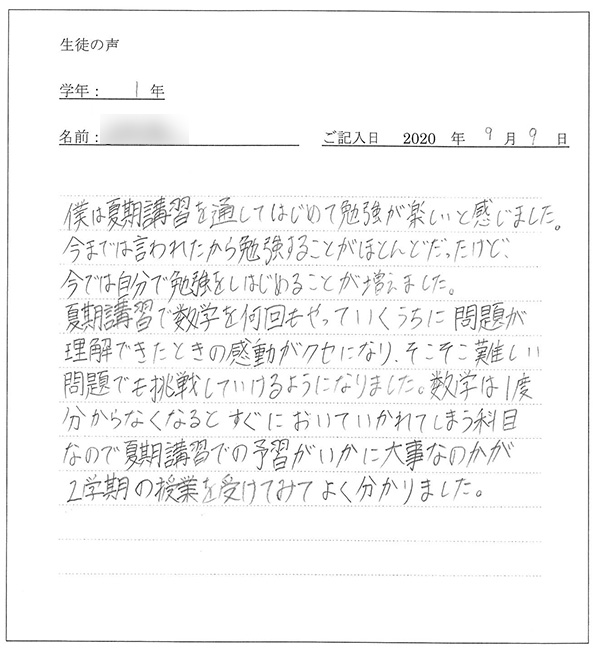 生徒の声
学年： 1 年
名前：
ご記入日 2020 年 9 月 9 日
僕は夏期講習を通してはじめて勉強が楽しいと感じました。
今までは言われたから勉強することがほとんどだったけど、
今では自分で勉強をしはじめることが増えました。
夏期講習で数学を何回もやっていくうちに問題が
理解できたときの感動がクセになり、そこそこ難しい
問題でも挑戦していけるようになりました。数学は1度
分からなくなるとすぐにおいていかれてしまう科目
なので夏期講習での予習がいかに大事なのかが
2学期の授業を受けてみてよく分かりました。